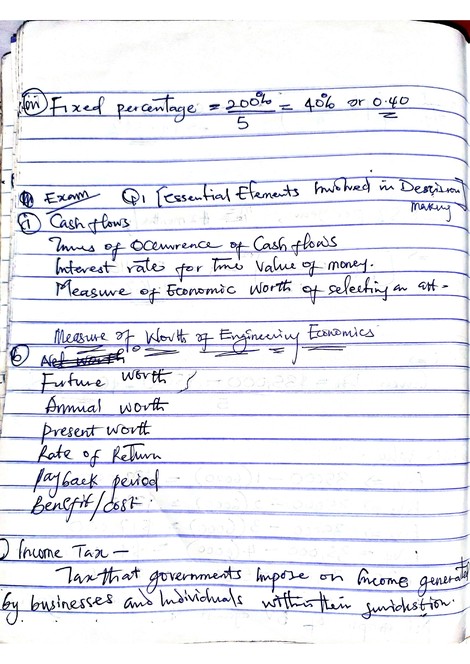 (iii) Fixed percentage = 200%/5 = 40% or 0.40
Exam Q1 [Essential Elements Involved in Descision
Making
(i) Cash flows
Times of Ocurrence of Cash flows
Interest rate for Time Value of money.
Measure of Economic Worth of selecting an alt-
Measure of Worth of Engineering Economics
(b) Net worth
Future worth
Annual worth
Present worth
Rate of Return
Payback period
Benefit/cost.
) Income Tax —
Tax that governments impose on income generated
by businesses and individuals within their juridstion.